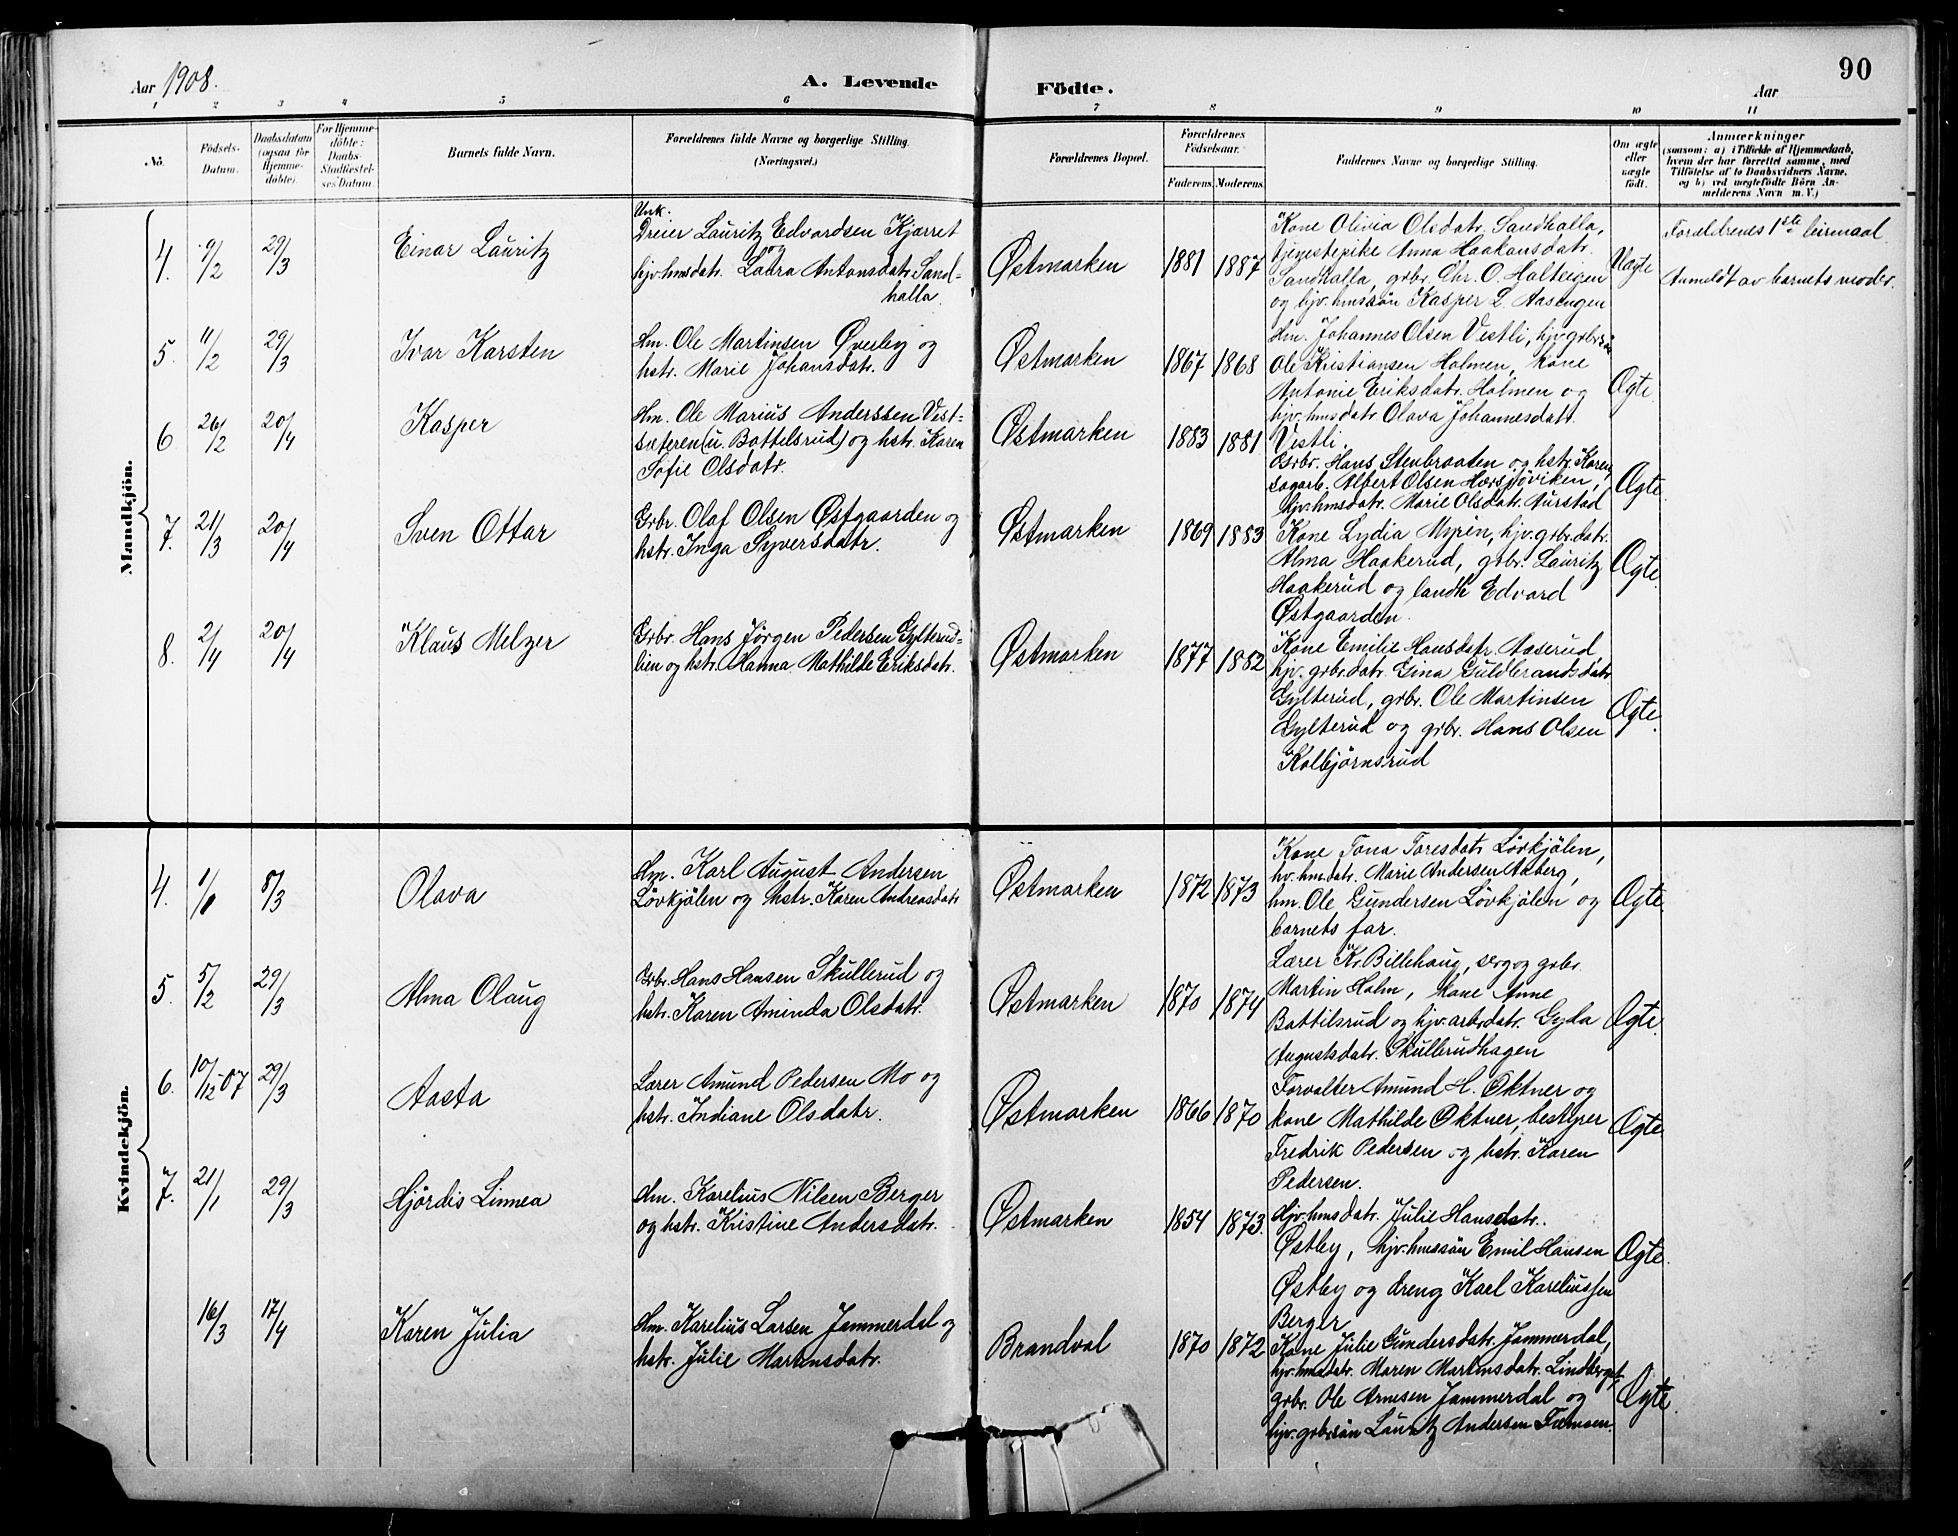 Aar 1908.
A. Levende
Födte.
Aar
90
1 2 3 4 5 6 7 8 9 10 11
No.
Födsels-
Datum.
Daabsdatum
(ogsaa for
Hjemme-
döbte).
For Hjemme-
döbte:
Daabs-
Stadfæstel-
ses Datum.
Barnets fulde Navn.
Forældrenes fulde Navne og borgerlige Stilling.
(Næringsvei.)
Forældrenes Bopæl.
Forældrenes
Födselsaar.
Faderens. Moderens.
Faddernes Navne og borgerlige Stilling.
Om ægte
eller
uægte
født.
Anmærkninger
(saasom: a) i Tilfælde af Hjemmedaab,
hvem der har forrettet samme, med
Tilföielse af to Daabsvidners Navne.
og b) ved uægtefödte Börn An-
melderens Navn m. V.)
Mandkjön.
4. 9/2 29/3 Einar Lauritz
Unk.
Dreier Lauritz Edvardsen Kjærret
og
hjv. hmsdatr. Laura Antonsdatr. Sand-
halla.
Østmarken 1881 1887
Kone Olivia Olsdatr. Sandhalla,
tjenestepike Anna Haakansdatr.
Sandhalla, grbr. Chr. O. Haltvegen
og hjv. hmssön Kasper L. Aasengen
Uægte
Forældrenes 1ste leirmaal
Anmeldt av barnets moder.
5. 11/2 29/3 Ivar Karsten
Hm. Ole Martinsen Øverby og
hstr. Marie Johansdatr.
Østmarken 1867 1868
Hm. Johannes Olsen Vestli, hjv. grbrsön
Ole Kristiansen Holmen, kone
Antonie Eriksdatr. Holmen og
hjv. hmsdatr Olava Johannesdatr.
Vestli.
Ægte.
6 26/2 20/4 Kasper
Hm. Ole Marius Anderssen Vest-
sæteren (u. Battelsrud) og hstr. Karen
Sofie Olsdatr.
Østmarken 1883 1881
Grbr. Hans Stenbraaten og hstr. Karen,
sagarb. Albert Olsen Hærsjøviken,
hjv. hmsdatr. Marie Olsdatr. Aurstad
Ægte.
7. 21/3 20/4 Sven Ottar
Grbr. Olaf Olsen Østgaarden og
hstr. Inga Syversdatr.
Østmarken 1869 1883
Kone Lydia Myren, hjv. grbr. datr.
Alma Haakerud, grbr. Lauritz
Haakerud og landh. Edvard
Østgaarden.
Ægte.
8. 2/4 20/4 Klaus Melzer
Grbr. Hans Jørgen Pedersen Gylterud-
lien og hstr. Hanna Mathilde Eriksdatr.
Østmarken 1877 1882
Kone Emilie Hansdatr. Aaserud,
hjv. grbr. datr. Gina Guldbrandsdatr.
Gylterud, grbr. Ole Martinsen
Gylterud og grbr. Hans Olsen
Kolbjörnsrud
Ægte.
Kvindekjön.
4. 1/1 8/3 Olava
Hm. Karl August Andersen
Lövkjölen og hstr. Karen Andreasdatr
Østmarken 1872 1873
Kone Tona Toresdatr. Lövkjölen,
hv. hmdatr. Marie Andersen Aaberg,
hm. Ole Gundersen Lövkjölen og
barnets far.
Ægte.
5. 5/2 29/3 Alma Olaug
Grbr. Hans Hansen Skullerud og
hstr. Karen Aminda Olsdatr.
Østmarken 1870 1874
Lærer Kr. Billehaug, serg og grbr.
Martin Holm, kone Anne
Battilsrud og hjv. arbrdatr. Gyda
Augustsdatr. Skullerudhagen
Ægte.
6. 10/12-07 29/3 Aasta
Lærer Amund Pedersen Mo og
hstr. Indiane Olsdatr.
Østmarken 1866 1870
Forvalter Amund H. Oktner og
kone Mathilde Oktner, bestyrer
Fredrik Pedersen og hstr. Karen
Pedersen.
Ægte
7. 21/1 29/3 Hjördis Linnea
Hm. Karelius Nilsen Berger
og hstr. Kristine Andersdatr.
Østmarken 1854 1873.
Hjv. hmsdatr. Julie Hansdatr.
Østby, hjv. hmssön Emil Hansen
Østby og dreng Karl Kareliussen
Berger
Ægte.
16/3 17/4 Karen Julia
Hm. Karelius Larsen Jammerdal og
hstr. Julie Martinsdatr.
Brandval 1870 1872
Kone Julie Gundersdatr. Jammerdal,
hjv. hmsdatr. Maren Martinsdatr. Lindberget,
grbr. Ole Arnesen Jammerdal og
hjv. grbrsön Lauritz Andersen
Ægte.